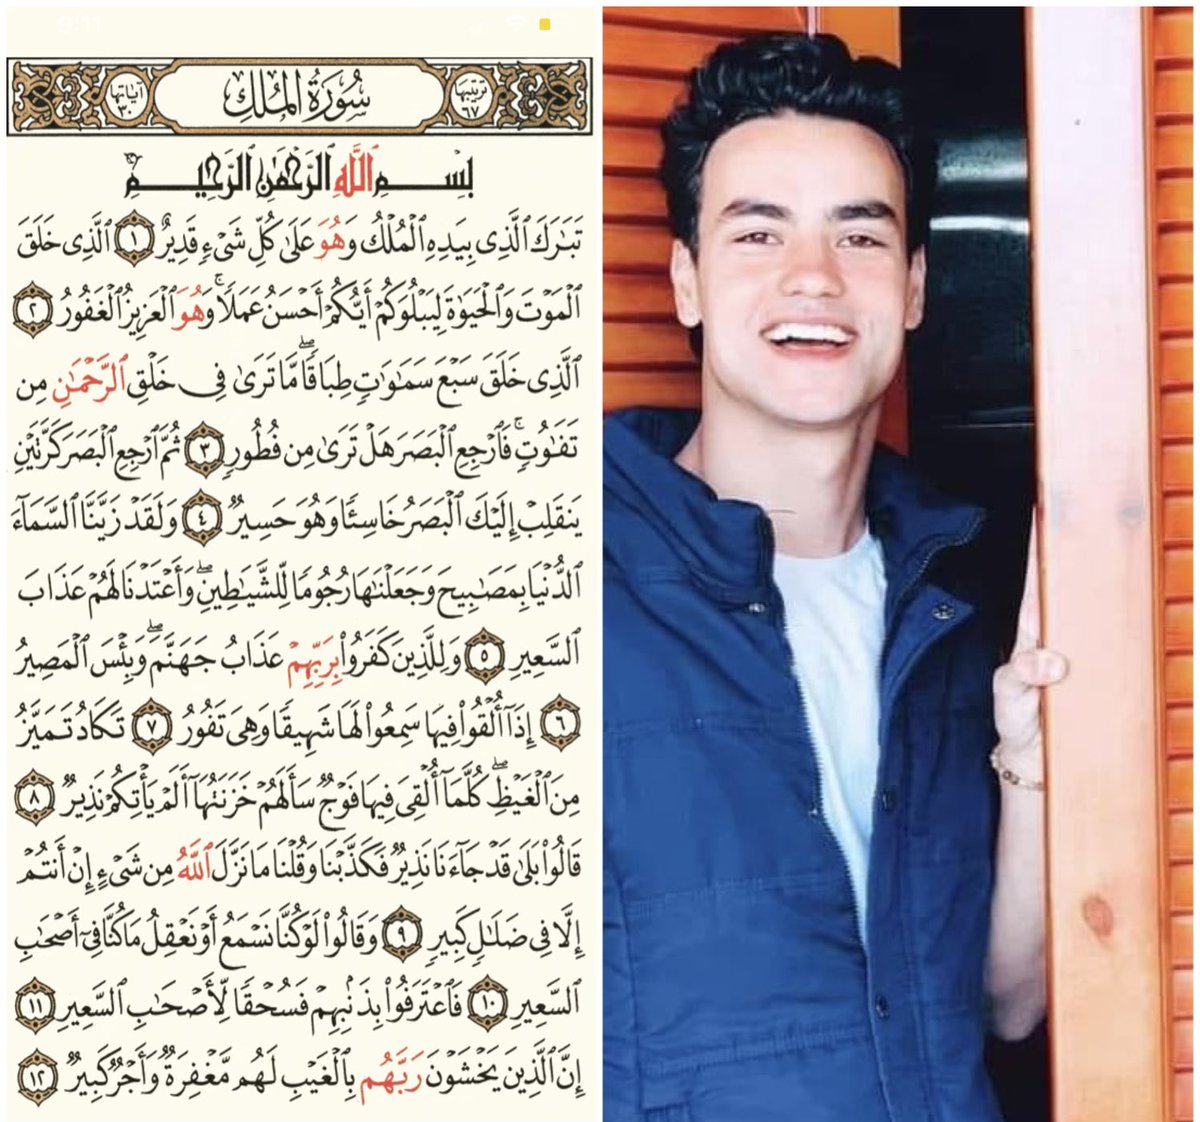 9:11
ترتيبها ٦٧ سُورَةُ المُلك آياتها ٣٠
بِسْمِ ٱللَّهِ ٱلرَّحْمَٰنِ ٱلرَّحِيمِ
تَبَٰرَكَ ٱلَّذِى بِيَدِهِ ٱلْمُلْكُ وَهُوَ عَلَىٰ كُلِّ شَىْءٍ قَدِيرٌ ١ ٱلَّذِى خَلَقَ
ٱلْمَوْتَ وَٱلْحَيَوٰةَ لِيَبْلُوَكُمْ أَيُّكُمْ أَحْسَنُ عَمَلًا ۚ وَهُوَ ٱلْعَزِيزُ ٱلْغَفُورُ ٢
ٱلَّذِى خَلَقَ سَبْعَ سَمَٰوَٰتٍ طِبَاقًا ۖ مَّا تَرَىٰ فِى خَلْقِ ٱلرَّحْمَٰنِ مِن
تَفَٰوُتٍ ۖ فَٱرْجِعِ ٱلْبَصَرَ هَلْ تَرَىٰ مِن فُطُورٍ ٣ ثُمَّ ٱرْجِعِ ٱلْبَصَرَ كَرَّتَيْنِ
يَنقَلِبْ إِلَيْكَ ٱلْبَصَرُ خَاسِئًا وَهُوَ حَسِيرٌ ٤ وَلَقَدْ زَيَّنَّا ٱلسَّمَآءَ
ٱلدُّنْيَا بِمَصَٰبِيحَ وَجَعَلْنَٰهَا رُجُومًا لِّلشَّيَٰطِينِ ۖ وَأَعْتَدْنَا لَهُمْ عَذَابَ
ٱلسَّعِيرِ ٥ وَلِلَّذِينَ كَفَرُوا۟ بِرَبِّهِمْ عَذَابُ جَهَنَّمَ ۖ وَبِئْسَ ٱلْمَصِيرُ
٦ إِذَآ أُلْقُوا۟ فِيهَا سَمِعُوا۟ لَهَا شَهِيقًا وَهِىَ تَفُورُ ٧ تَكَادُ تَمَيَّزُ
مِنَ ٱلْغَيْظِ ۖ كُلَّمَآ أُلْقِىَ فِيهَا فَوْجٌ سَأَلَهُمْ خَزَنَتُهَآ أَلَمْ يَأْتِكُمْ نَذِيرٌ ٨
قَالُوا۟ بَلَىٰ قَدْ جَآءَنَا نَذِيرٌ فَكَذَّبْنَا وَقُلْنَا مَا نَزَّلَ ٱللَّهُ مِن شَىْءٍ إِنْ أَنتُمْ
إِلَّا فِى ضَلَٰلٍ كَبِيرٍ ٩ وَقَالُوا۟ لَوْ كُنَّا نَسْمَعُ أَوْ نَعْقِلُ مَا كُنَّا فِىٓ أَصْحَٰبِ
ٱلسَّعِيرِ ١٠ فَٱعْتَرَفُوا۟ بِذَنۢبِهِمْ فَسُحْقًا لِّأَصْحَٰبِ ٱلسَّعِيرِ ١١
إِنَّ ٱلَّذِينَ يَخْشَوْنَ رَبَّهُم بِٱلْغَيْبِ لَهُم مَّغْفِرَةٌ وَأَجْرٌ كَبِيرٌ ١٢